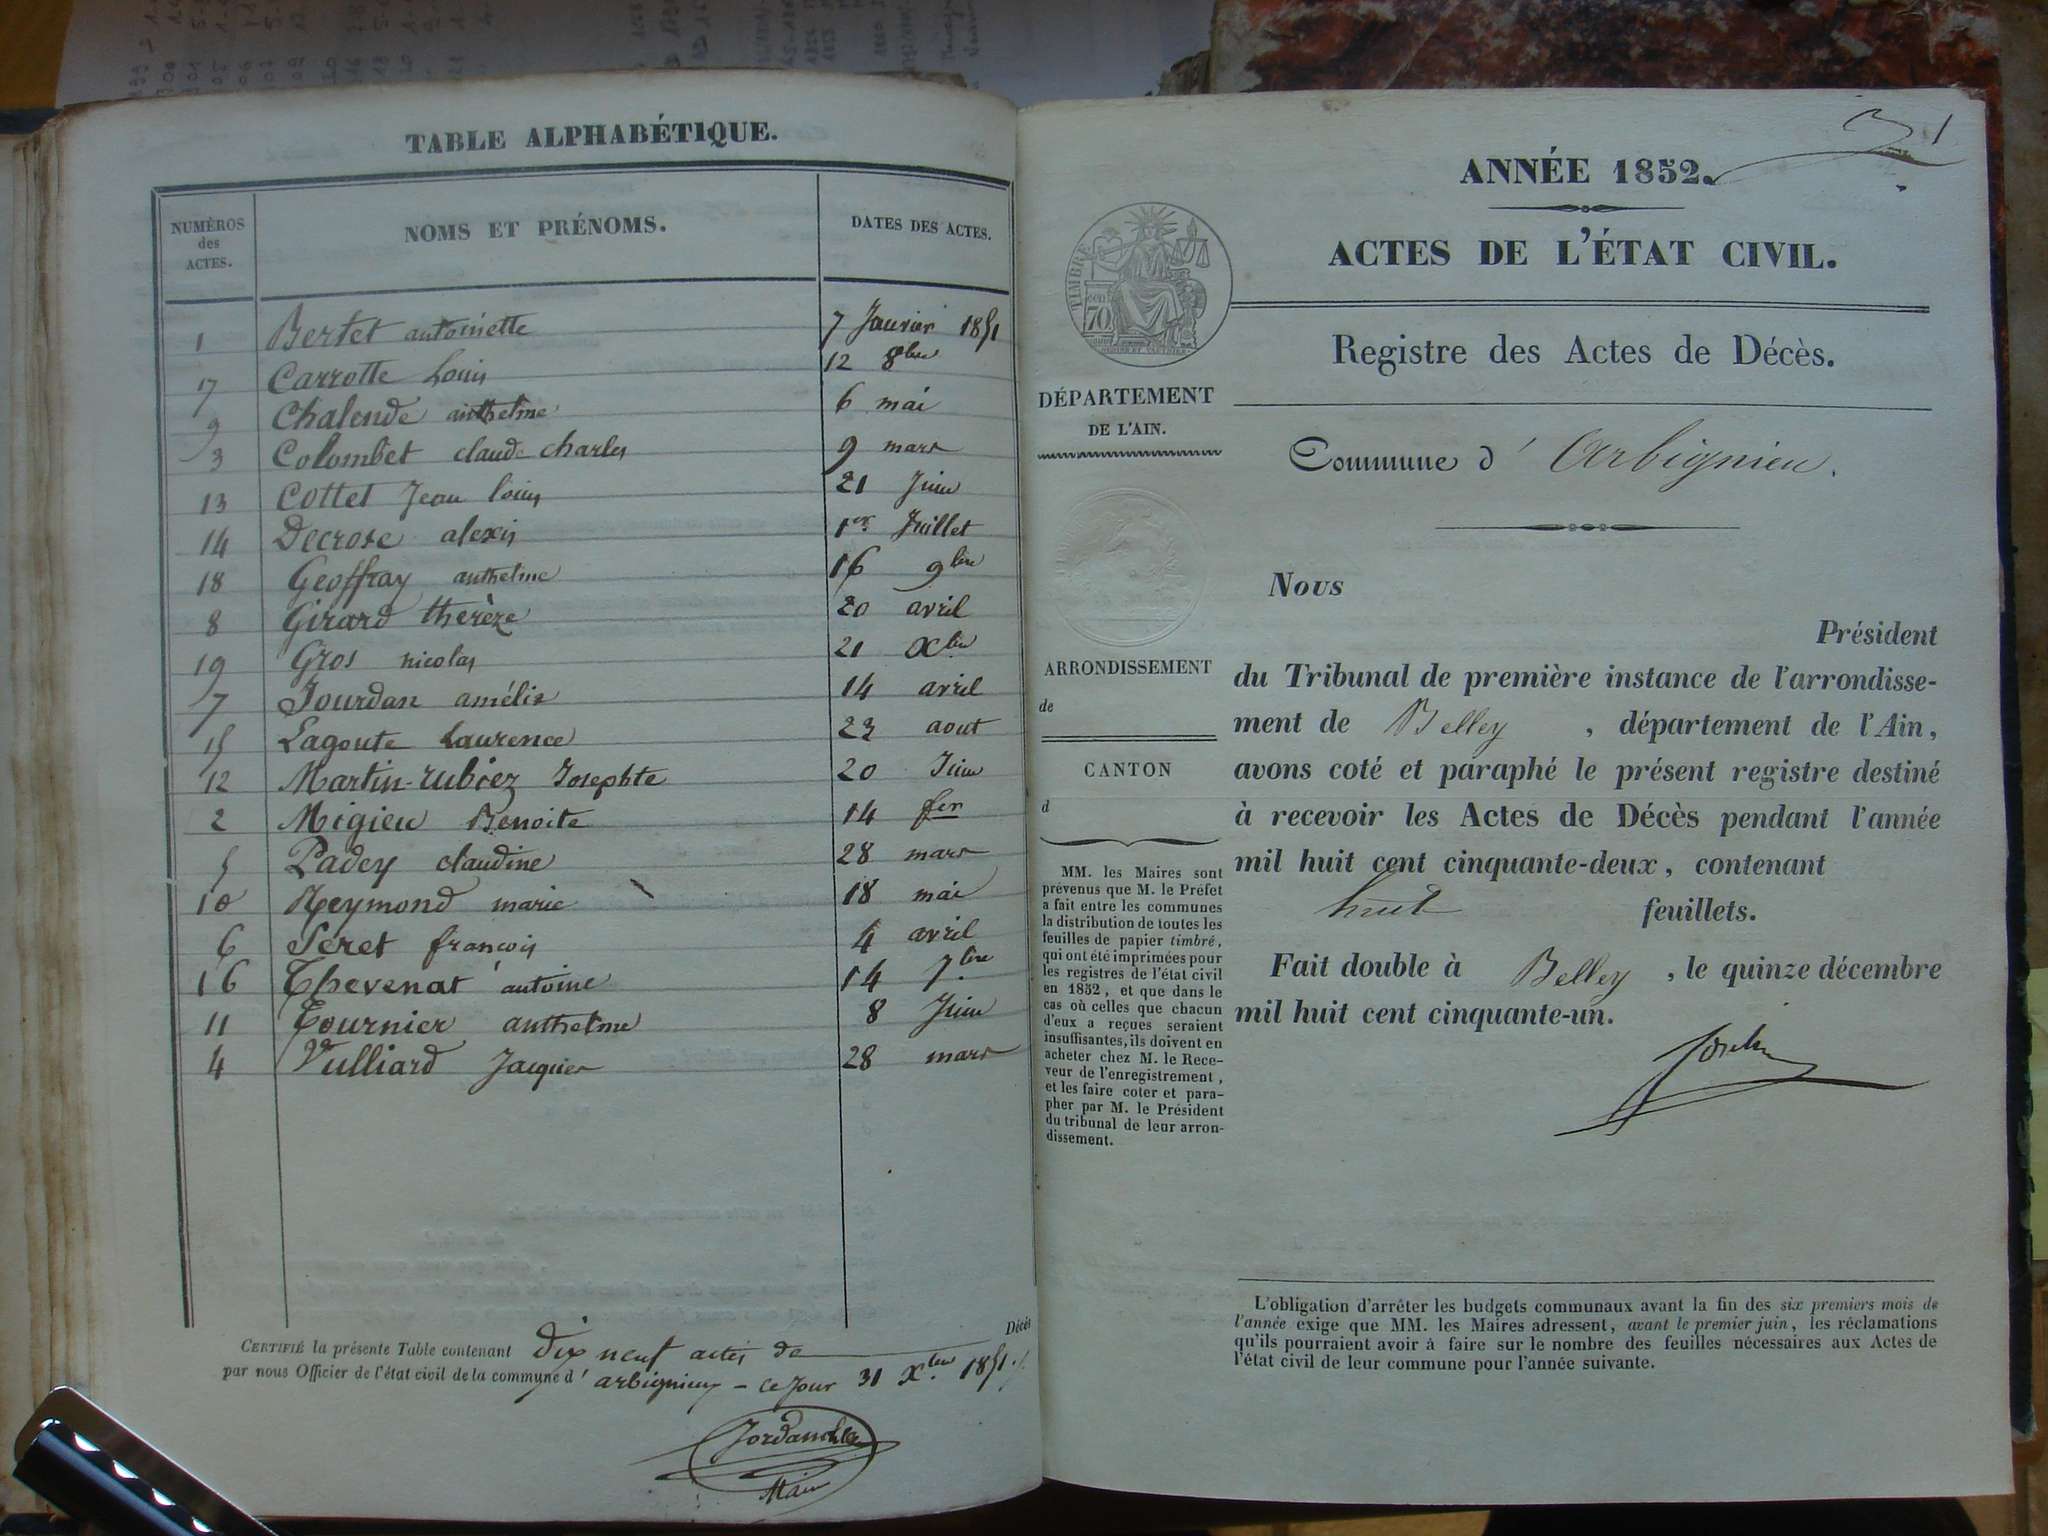 TABLE ALPHABÉTIQUE.
NUMÉROS des ACTES.
NOMS ET PRÉNOMS.
DATES DES ACTES.
1 Bertet antoinette 7 Janvier 1851
17 Carrotte Louis 12 8bre
9 Chalende anthelme 6 mai
3 Colombet claude charles 9 mars
13 Cottet Jean louis 21 Juin
14 Decrose alexis 1er Juillet
18 Geoffray anthelme 16 9bre
8 Girard thérèze 20 avril
19 Gros nicolas 21 Xbre
7 Jourdan amélie 14 avril
15 Lagoute Laurence 23 aout
12 Martin-rubiez Josephte 20 Juin
2 Migieu Benoite 14 fer
5 Padey claudine 28 mars
10 Reymond marie 18 mai
6 Seret françois 4 avril
16 Thevenat antoine 14 7bre
11 Tournier anthelme 8 Juin
4 Vulliard Jacques 28 mars
CERTIFIÉ la présente Table contenant dix neuf actes de Décès
par nous Officier de l'état civil de la commune d' arbignieu - ce jour 31 Xbre 1851
Maire
1
ANNÉE 1852.
ACTES DE L'ÉTAT CIVIL.
Registre des Actes de Décès.
TIMBRE
70
DÉPARTEMENT
DE L'AIN.
Commune d' Arbignieu.
ARRONDISSEMENT
de
CANTON
d
MM. les Maires sont
prévenus que M. le Préfet
a fait entre les communes
la distribution de toutes les
feuilles de papier timbré,
qui ont été imprimées pour
les registres de l'état civil
en 1852, et que dans le
cas où celles que chacun
d'eux a reçues seraient
insuffisantes, ils doivent en
acheter chez M. le Rece-
veur de l'enregistrement,
et les faire coter et para-
pher par M. le Président
du tribunal de leur arron-
dissement.
Nous
Président
du Tribunal de première instance de l'arrondisse-
ment de Belley, département de l'Ain,
avons coté et paraphé le présent registre destiné
à recevoir les Actes de Décès pendant l'année
mil huit cent cinquante-deux, contenant
huit feuillets.
Fait double à Belley, le quinze décembre
mil huit cent cinquante-un.
L'obligation d'arrêter les budgets communaux avant la fin des six premiers mois de
l'année exige que MM. les Maires adressent, avant le premier juin, les réclamations
qu'ils pourraient avoir à faire sur le nombre des feuilles nécessaires aux Actes de
l'état civil de leur commune pour l'année suivante.